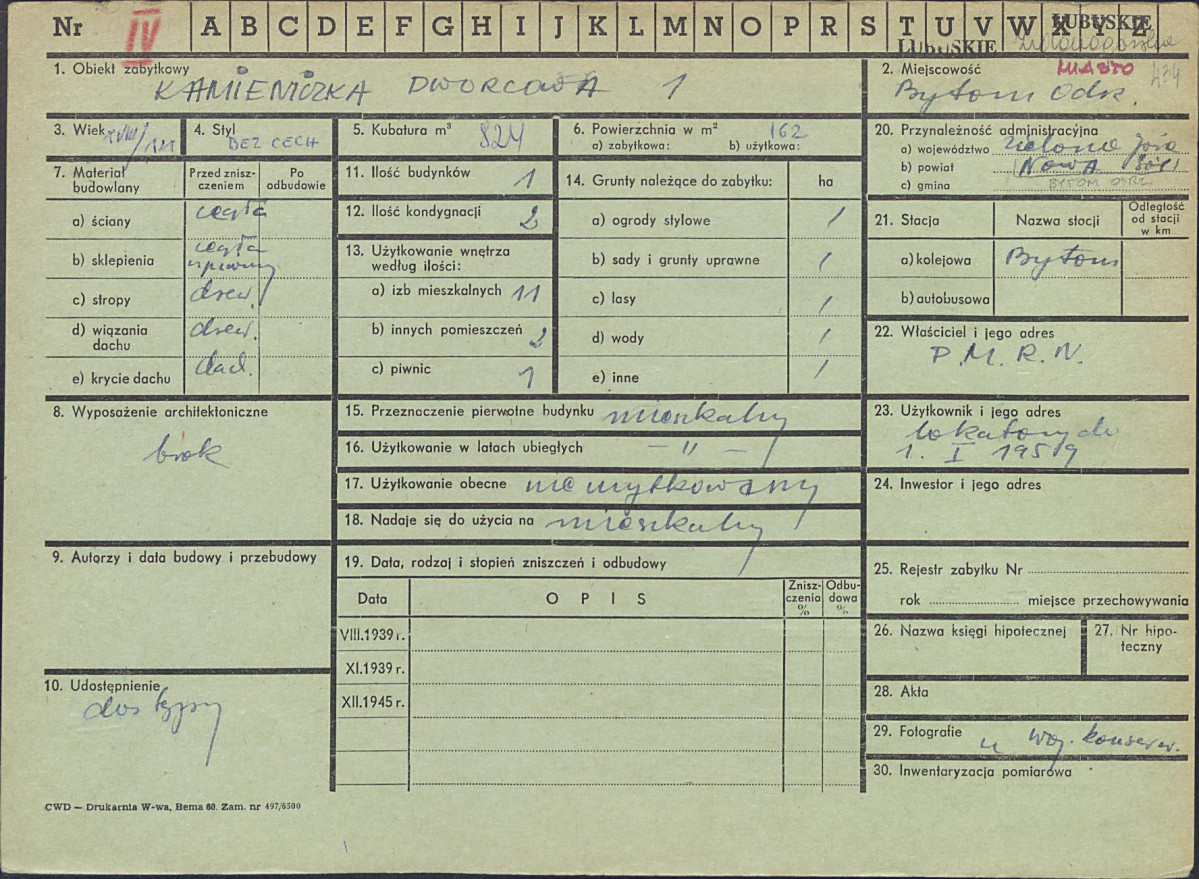 Nr IV A B C D E F G H I J K L M N O P R S T U V W X Y Z
LUBUSKIE
LUBUSKIE
1. Obiekt zabytkowy
KAMIENICZKA DWORCOWA 1
2. Miejscowość MIASTO 434
Bytom Odrz.
3. Wiek XVIII/
4. Styl
BEZ CECH
5. Kubatura m³ 824
6. Powierzchnia w m² 162
a) zabytkowa: b) użytkowa:
20. Przynależność administracyjna
a) województwo Zielona Góra
b) powiat Nowa Sól
c) gmina BYTOM ODRZ.
7. Materiał budowlany
Przed znisz-
czeniem
Po
odbudowie
a) ściany cegła
b) sklepienia cegła
c) stropy drew.
d) wiązania
dachu drew.
e) krycie dachu dach.
11. Ilość budynków 1
12. Ilość kondygnacji 2
13. Użytkowanie wnętrza
według ilości:
a) izb mieszkalnych 11
b) innych pomieszczeń 2
c) piwnic 1
14. Grunty należące do zabytku: ha
a) ogrody stylowe /
b) sady i grunty uprawne /
c) lasy /
d) wody /
e) inne /
21. Stacja Nazwa stacji
Odległość
od stacji
w km
a) kolejowa Bytom
b) autobusowa
22. Właściciel i jego adres
P.M.R.N.
8. Wyposażenie architektoniczne
brak
15. Przeznaczenie pierwotne budynku mieszkalny
16. Użytkowanie w latach ubiegłych — " —
17. Użytkowanie obecne nie użytkowany
18. Nadaje się do użycia na mieszkalny
23. Użytkownik i jego adres
lokatorzy do
1. I 1959
24. Inwestor i jego adres
9. Autorzy i data budowy i przebudowy
19. Data, rodzaj i stopień zniszczeń i odbudowy
Data O P I S
Znisz-
czenia
%
Odbu-
dowa
%
VIII.1939 r.
XI.1939 r.
XII.1945 r.
25. Rejestr zabytku Nr
rok miejsce przechowywania
26. Nazwa księgi hipotecznej
27. Nr hipo-
teczny
10. Udostępnienie
dostępny
28. Akta
29. Fotografie u woj. konserw.
30. Inwentaryzacja pomiarowa
CWD — Drukarnia W-wa, Bema 60. Zam. nr 497/6500